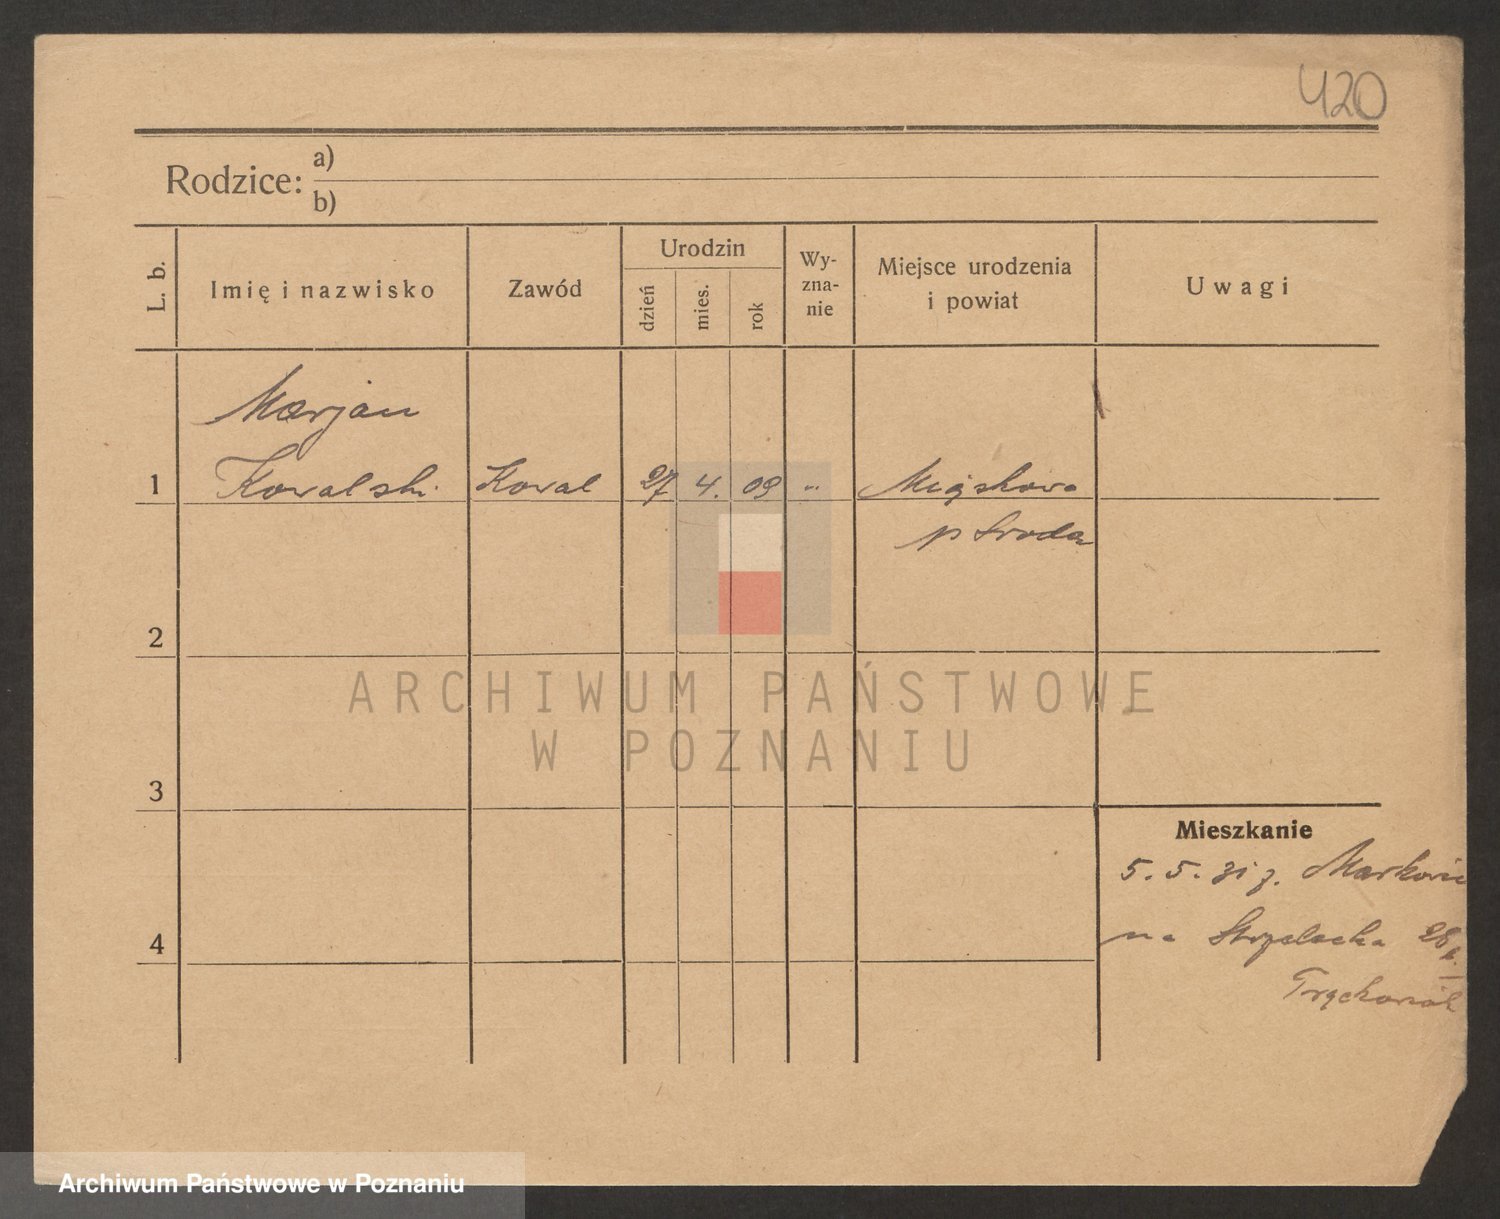 420
Rodzice: a)
b)
L. b.
Imię i nazwisko
Zawód
Urodzin
dzień
mies.
rok
Wy-
zna-
nie
Miejsce urodzenia
i powiat
Uwagi
Marjan
1 Kowalski Kowal 27 4. 09 "
p Środa
2
ARCHIWUM PAŃSTWOWE
W POZNANIU
3
Mieszkanie
5. 5. 31 z.
4
na Strzelecka 28
Archiwum Państwowe w Poznaniu